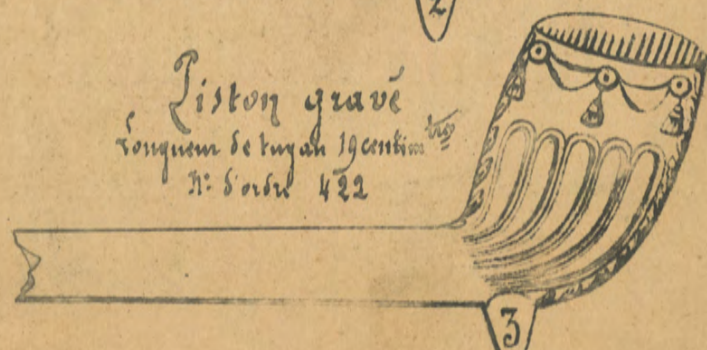 2
Piston gravé
Longueur de tuyau 19 centim tres
N° d'ordre 422
3